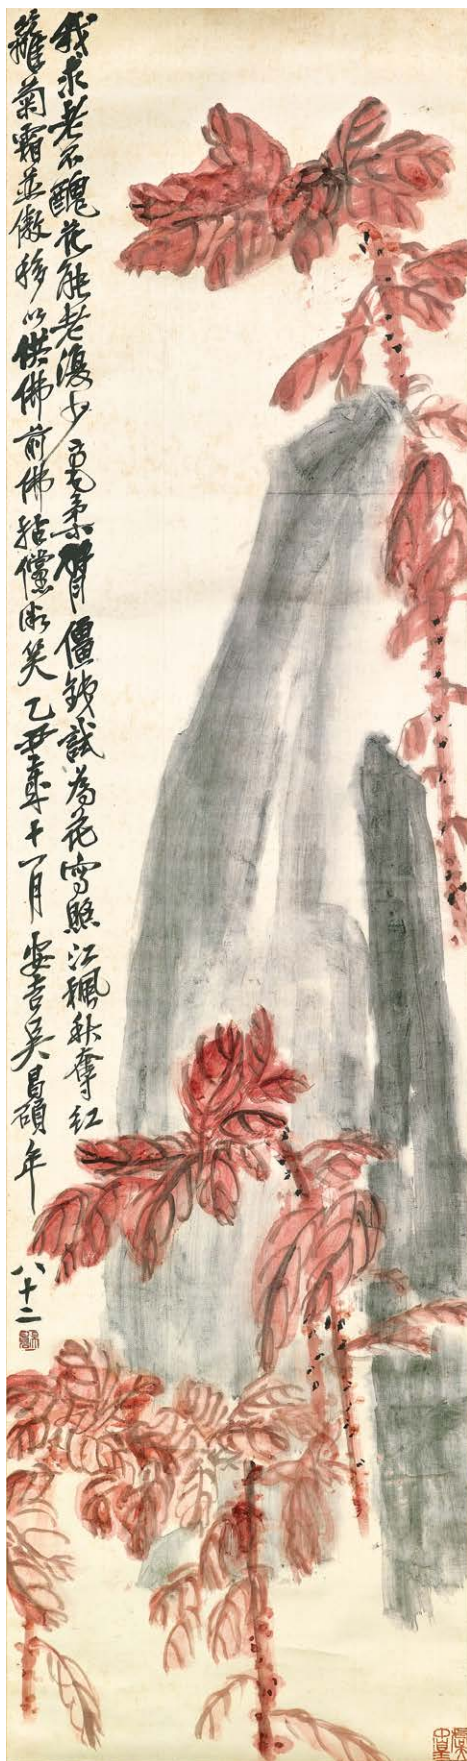 我求老不醜花能老復少毫柔臂僵錢試為花寫照江楓秋奪紅
籬菊霜並傲移以供佛前佛拈儻微笑乙丑歲十一月安吉吳昌碩年
八十二